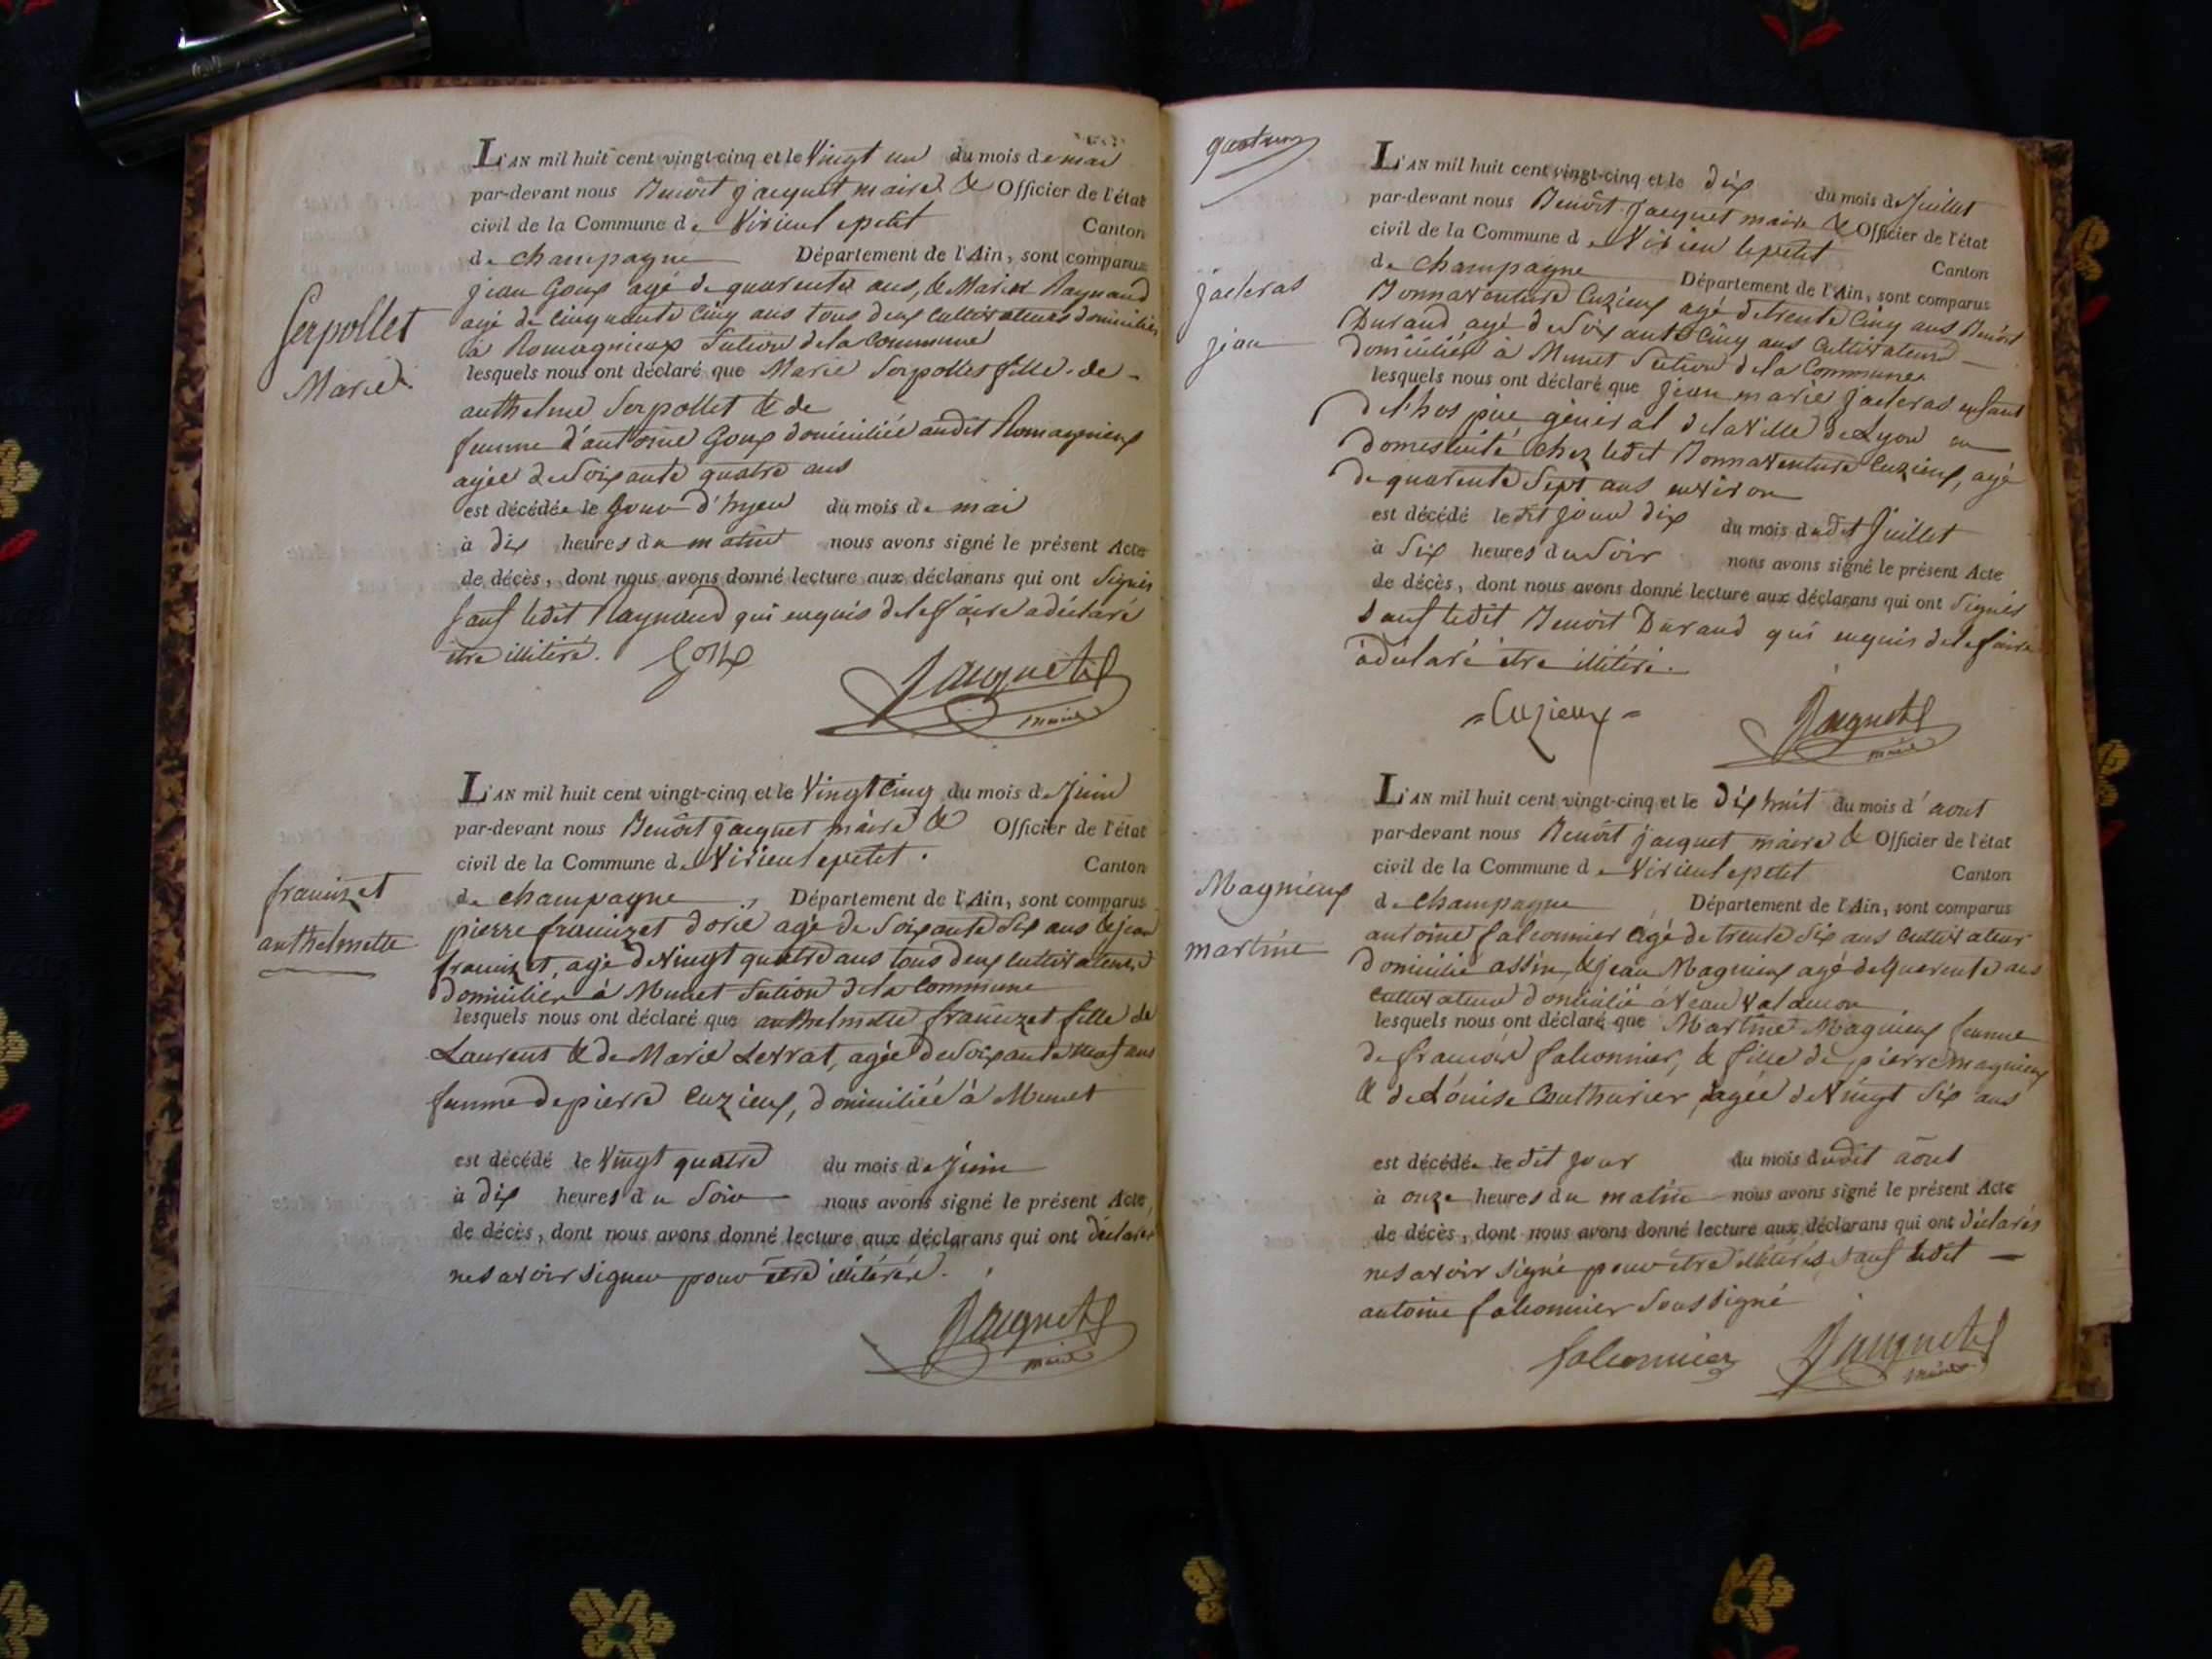 Serpollet
Marie
L'AN mil huit cent vingt-cinq et le Vingt un du mois de mai
par-devant nous Benoit jacquet maire & Officier de l'état
civil de la Commune de Virieu lepetit Canton
de champagne Département de l'Ain, sont comparus
jean Goux agé de quarente ans, & Marin Raynaud
agé de Cinquante Cinq ans tous deux Cultivateurs domiciliés
à Romagnieux Section dela Commune
lesquels nous ont déclaré que Marie Serpollet fille de
anthelme Serpollet & de
femme d'antoine Goux domiciliée audit Romagnieux
agée de Soixante quatre ans
est décédée le Jour d'hyer du mois de mai
à dix heures du matin nous avons signé le présent Acte
de décès, dont nous avons donné lecture aux déclarans qui ont Signés
Sauf ledit Raynaud qui enquis de le faire a déclaré
être illitéré. Goux
Jacquet
maire
franizet
anthelmette
L'AN mil huit cent vingt-cinq et le Vingt Cinq du mois de Juin
par-devant nous Benoit jacquet maire & Officier de l'état
civil de la Commune de Virieu lepetit. Canton
de champagne Département de l'Ain, sont comparus
pierre franizet agé de Soixante Six ans & jean
franizet, agé de Vingt quatre ans tous deux Cultivateurs
domiciliés à Munet Section dela Commune
lesquels nous ont déclaré que anthelmette franizet fille de
Laurent & de Marie Levrat, agée de Soixante neuf ans
femme de pierre Cuzieux, domiciliée à Munet
est décédé le Vingt quatre du mois de Juin
à dix heures du Soir nous avons signé le présent Acte,
de décès, dont nous avons donné lecture aux déclarans qui ont déclarés
ne Savoir Signer pour être illitérés.
Jacquet
maire
jacleras
jean
L'AN mil huit cent vingt-cinq et le dix du mois de Juillet
par-devant nous Benoit jacquet maire & Officier de l'état
civil de la Commune de Virieu lepetit Canton
de Champagne Département de l'Ain, sont comparus
Bonnaventure Cuzieux agé de trente Cinq ans Benoit
Durand agé de Soixante Cinq ans Cultivateurs
domiciliés à Munet Section dela Commune
lesquels nous ont déclaré que jean marie jacleras enfant
de l'hospice général dela Ville de Lyon en
domesticité chez ledit Bonnaventure Cuzieux, agé
de quarente Sept ans environ
est décédé le dit jour dix du mois dudit Juillet
à Six heures du Soir nous avons signé le présent Acte
de décès, dont nous avons donné lecture aux déclarans qui ont Signés
Sauf ledit Benoit Durand qui enquis de le faire
a déclaré être illitéré.
= Cuzieux =
Jacquet
maire
Magnieux
martine
L'AN mil huit cent vingt-cinq et le dix huit du mois d'aout
par-devant nous Benoit jacquet maire & Officier de l'état
civil de la Commune de Virieu lepetit Canton
de champagne Département de l'Ain, sont comparus
antoine falconnier agé de trente Six ans Cultivateur
domicilié assin, & jean Magnieux agé de quarente ans
Cultivateur domicilié à
lesquels nous ont déclaré que Martine Magnieux femme
de francois falconnier, & fille de pierre magnieux
& de Louise Couthurier, agée de Vingt Six ans
est décédée le dit jour du mois dudit août
à onze heures du matin nous avons signé le présent Acte
de décès, dont nous avons donné lecture aux déclarans qui ont déclarés
ne Savoir Signé pour être illitérés, Sauf ledit
antoine falconnier Soussigné
falconnier
Jacquet
maire